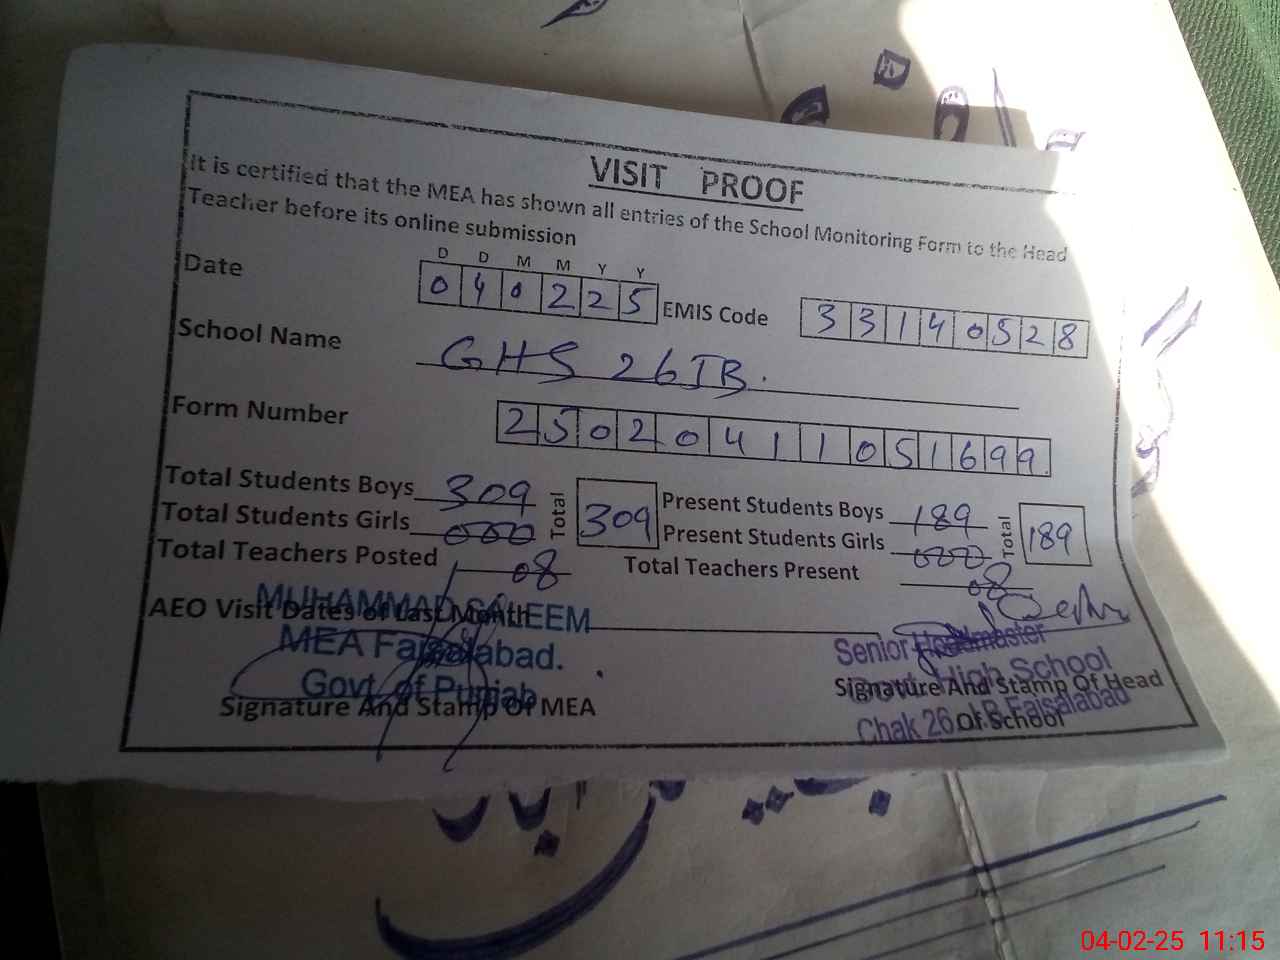 VISIT PROOF
It is certified that the MEA has shown all entries of the School Monitoring Form to the Head
Teacher before its online submission
D D M M Y Y
Date 040225 EMIS Code 33140528
School Name GHS 26JB.
Form Number 25020411051699
Total Students Boys 309 Total 309 Present Students Boys 189 Total 189
Total Students Girls 000 Present Students Girls 000
Total Teachers Posted 08 Total Teachers Present 08
AEO Visit Dates of Last Month
MUHAMMAD SALEEM
MEA Faisalabad.
Govt. of Punjab
Signature And Stamp Of MEA
Senior Headmaster
Govt. High School
Chak 26 J.B Faisalabad
Signature And Stamp Of Head
Of School
04-02-25 11:15